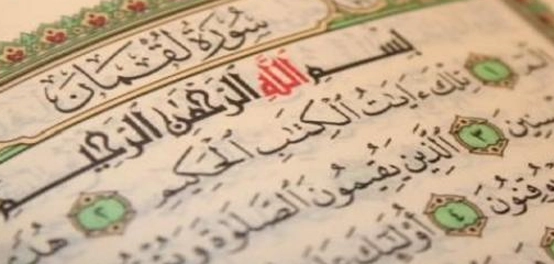 سُورَةُ لُقْمَان
بِسْمِ اللَّهِ الرَّحْمَٰنِ الرَّحِيمِ
الٓمٓ ١ تِلْكَ ءَايَٰتُ الْكِتَٰبِ الْحَكِيمِ ٢
٣ الَّذِينَ يُقِيمُونَ الصَّلَوٰةَ
٤ أُوْلَٰٓئِكَ